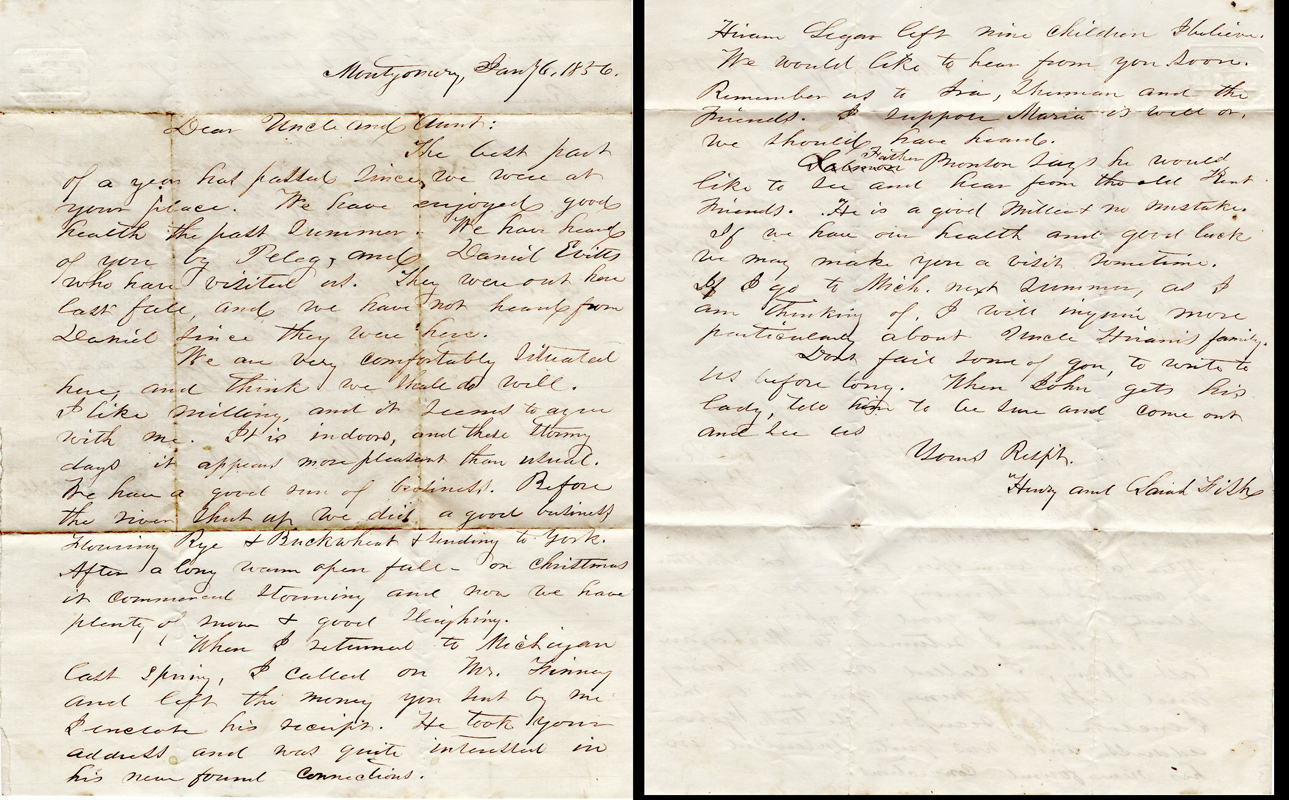 Montgomery, Jany 6, 1856.
Dear Uncle and Aunt:
The best part
of a year has passed since we were at
your place. We have enjoyed good
health the past Summer. We have heard
of you by Peleg, and Daniel Evitts
who have visited us. They were out here
last fall, and we have not heard from
Daniel since they were here.
We are very comfortably situated
here, and think we shall do well.
I like milling, and it seems to agree
with me. It is indoors, and these stormy
days it appears more pleasant than usual.
We have a good run of business. Before
the river shut up we did a good business
Flouring Rye & Buckwheat & sending to York.
After a long warm open fall - on christmas
it commenced storming and now we have
plenty of snow & good sleighing.
When I returned to Michigan
last Spring, I called on Mr. Finney
and left the money you sent by me
I enclose his receipt. He took your
address and was quite interested in
his new found connections.
Hiram Segar left nine children I believe.
We would like to hear from you soon.
Remember us to Ira, Sherman and the
Friends. I suppose Maria is well or,
we should have heard.
Father Bronson says he would
like to see and hear from the old Kent
Friends. He is a good Miller & no mistake.
If we have our health and good luck
we may make you a visit sometime.
If I go to Mich. next summer, as I
am thinking of, I will inquire more
particularly about Uncle Hiram's family.
Dont fail some of you, to write to
us before long. When John gets his
lady, tell him to be sure and come out
and see us
Yours Respt.
Henry and Sarah Fisk